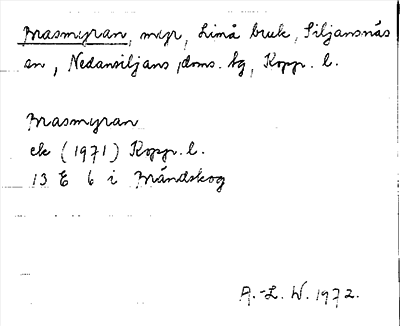 Brasmyran, myr, Limå bruk, Siljansnäs
sn, Nedansiljans doms. hg, Kopp. l.
Brasmyran
ek (1971) Kopp. l.
13 E 6 i Brändskog
A.-L. W. 1972.